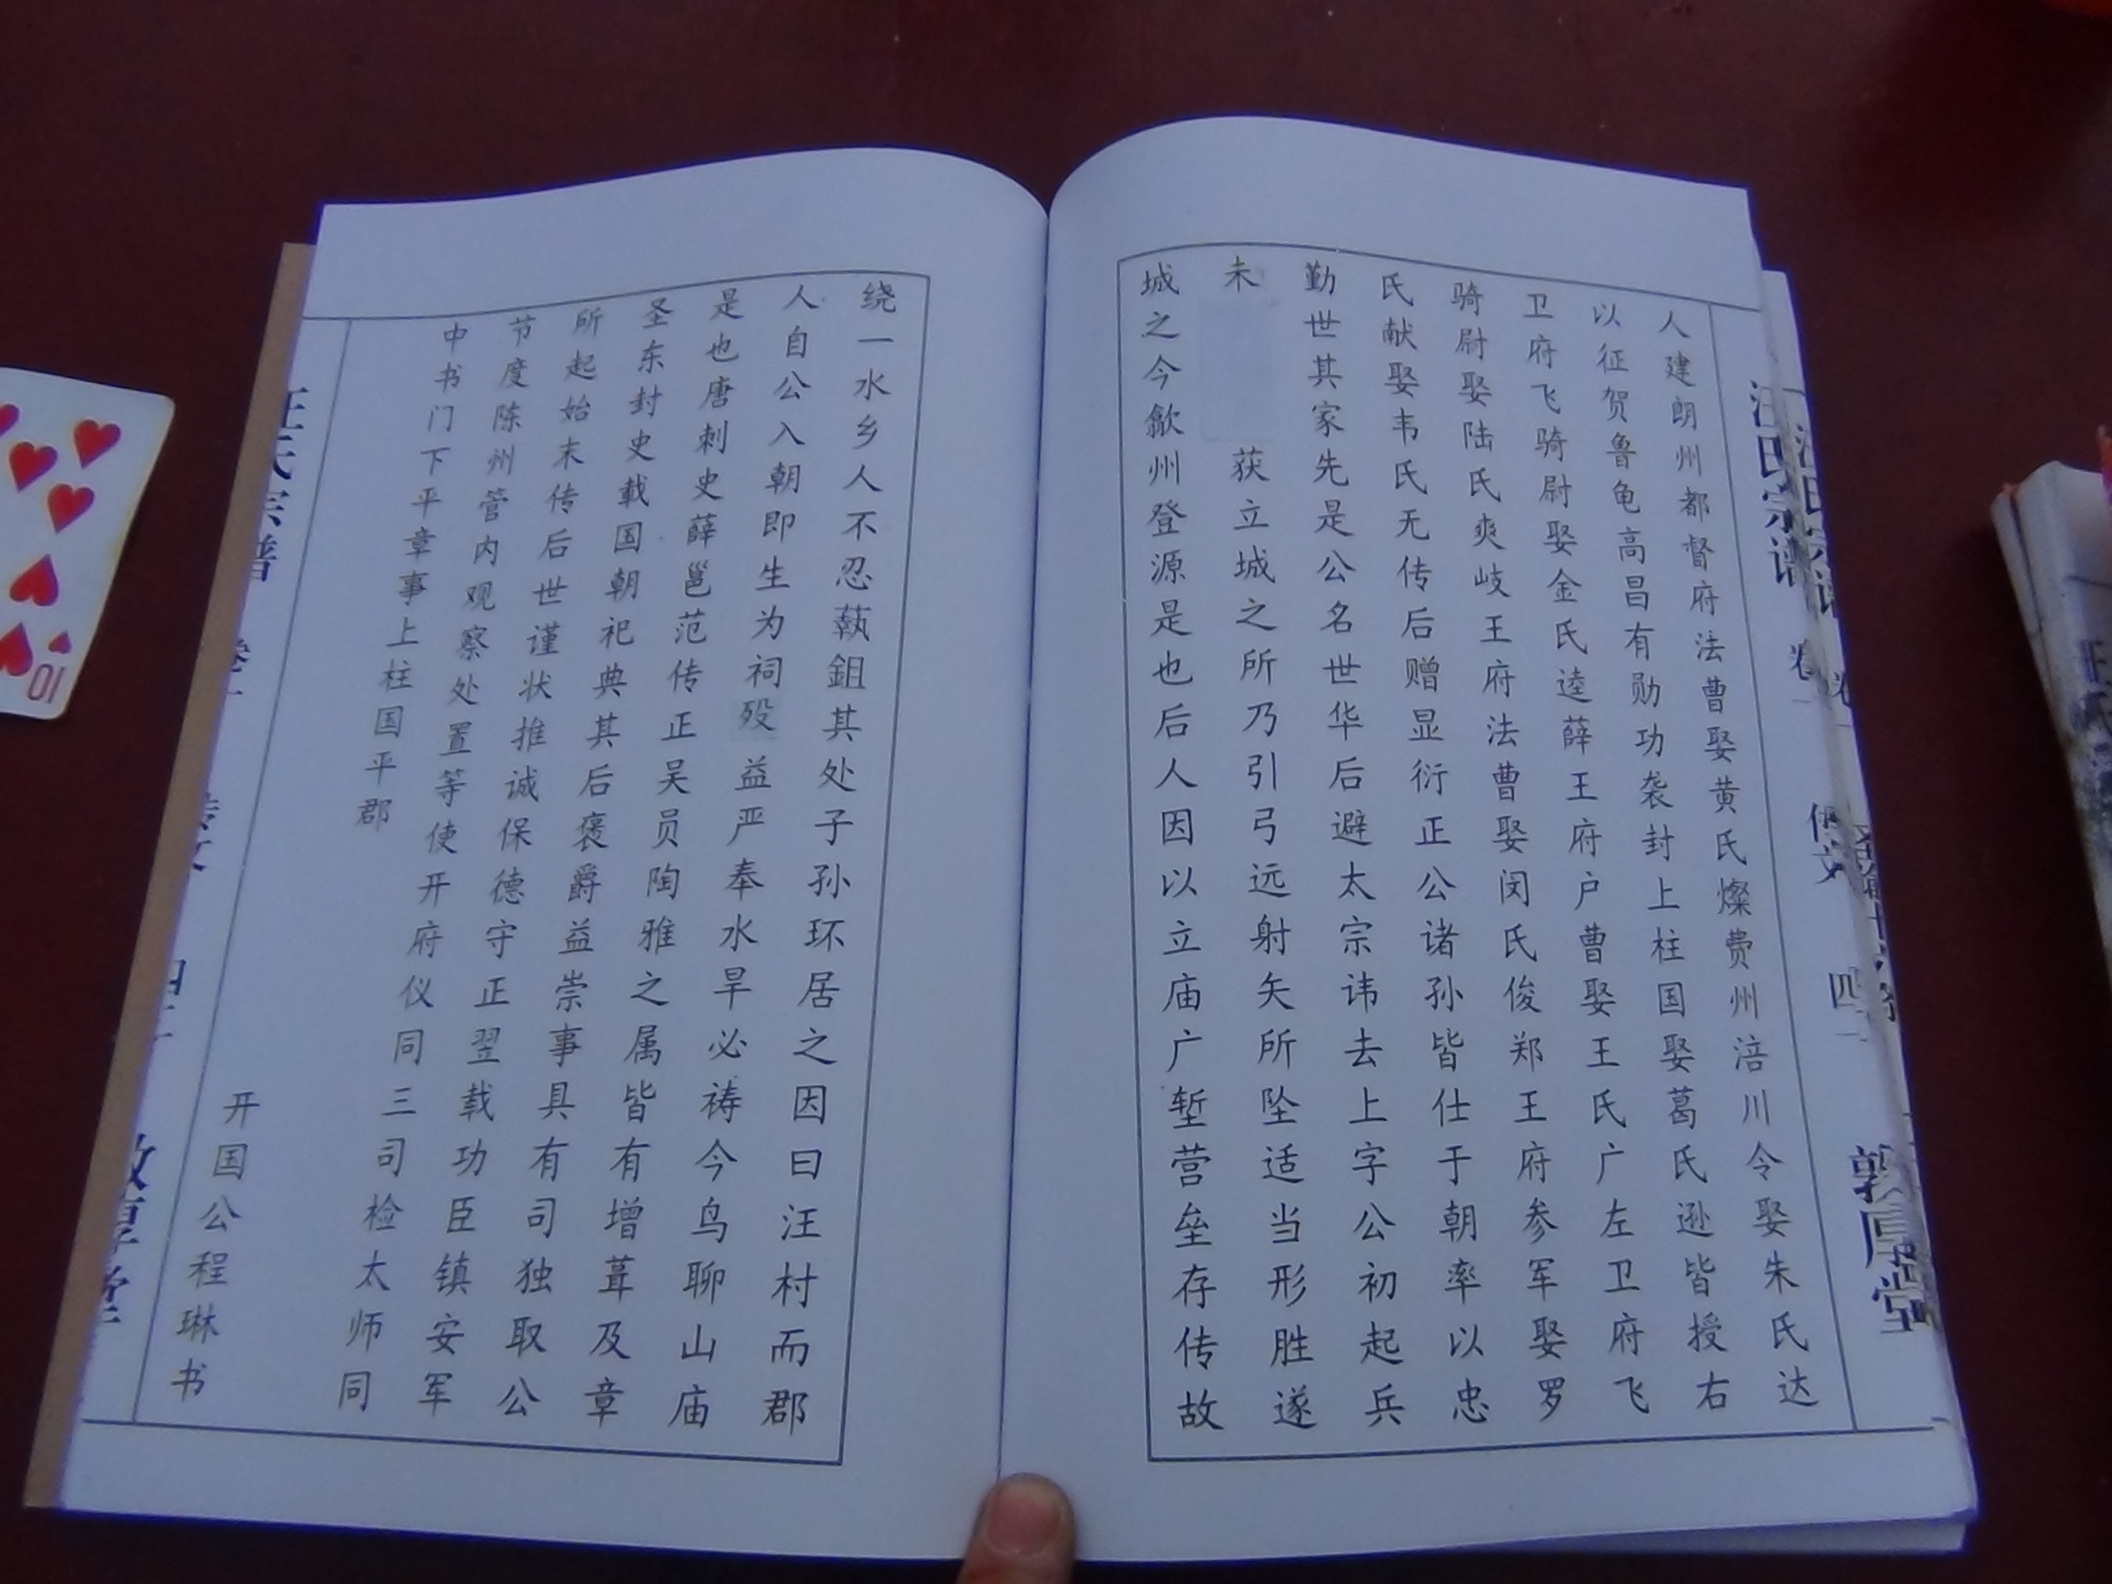 汪氏宗谱 卷一 四 敦厚堂
人建朗州都督府法曹娶黄氏燦费州涪川令娶朱氏达
以征贺鲁龟高昌有勋功袭封上柱国娶葛氏逊皆授右
卫府飞骑尉娶金氏逵薛王府户曹娶王氏广左卫府飞
骑尉娶陆氏爽岐王府法曹娶闵氏俊郑王府参军娶罗
氏献娶韦氏无传后赠显衍正公诸孙皆仕于朝率以忠
勤世其家先是公名世华后避太宗讳去上字公初起兵
未 获立城之所乃引弓远射矢所坠适当形胜遂
城之今歙州登源是也后人因以立庙广堑营垒存传故
绕一水乡人不忍蓺鉏其处子孙环居之因曰汪村而郡
人自公入朝即生为祠殁益严奉水旱必祷今鸟聊山庙
是也唐刺史薛邕范传正吴员陶雅之属皆有增葺及章
圣东封史载国朝祀典其后褒爵益崇事具有司独取公
所起始末传后世谨状推诚保德守正翌载功臣镇安军
节度陈州管内观察处置等使开府仪同三司检太师同
中书门下平章事上柱国平郡
开国公程琳书
汪氏宗谱